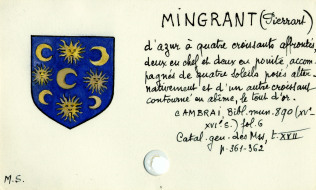 MINGRANT (Pierrart)
d'azur à quatre croissants affrontés,
deux en chef et deux en pointe, accom-
pagnés de quatre soleils posés alter-
nativement et d'un autre croissant
contourné en abîme, le tout d'or.
CAMBRAI, Bibl. mun. 890 (XVe-
XVIe s.) fol. 6
Catal. gén. des Mss, t. XVII
p. 361-362
M.S.